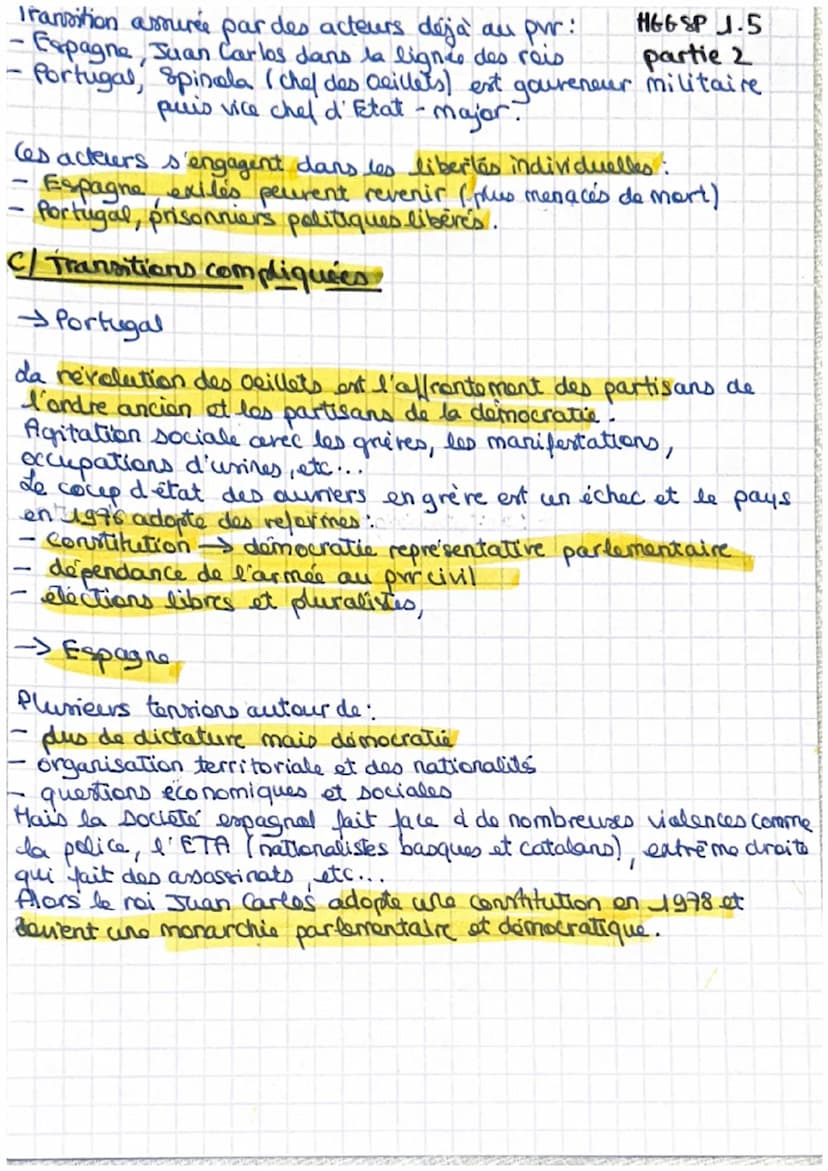 Transition assurée par des acteurs déjà au pvr :
HGGSP 1.5
partie 2
- Espagne, Juan Carlos dans la lignée des rois
- Portugal, Spinola (chef des oeillets) est gouverneur militaire
puis vice chef d'Etat-major.
Ces acteurs s'engagent dans les libertés individuelles :
- Espagne, exilés peuvent revenir (plus menacés de mort)
- Portugal, prisonniers politiques libérés.
C/ Transitions compliquées
→ Portugal
La révolution des oeillets est l'affrontement des partisans de
l'ordre ancien et les partisans de la démocratie.
Agitation sociale avec les grèves, les manifestations,
occupations d'usines, etc...
Le coup d'état des ouvriers en grève est un échec et le pays
en 1976 adopte des reformes :
- Constitution → démocratie représentative parlementaire
- dépendance de l'armée au pvr civil
- éléctions libres et pluralistes,
→ Espagne
Plusieurs tensions autour de :
- plus de dictature mais démocratie
- organisation territoriale et des nationalités
- questions économiques et sociales
Mais la société espagnol fait face à de nombreuses violences comme
la police, l'ETA (nationalistes basques et catalans), extrême droite
qui fait des assassinats, etc...
Alors le roi Juan Carlos adopte une constitution en 1978 et
devient une monarchie parlementaire et démocratique.